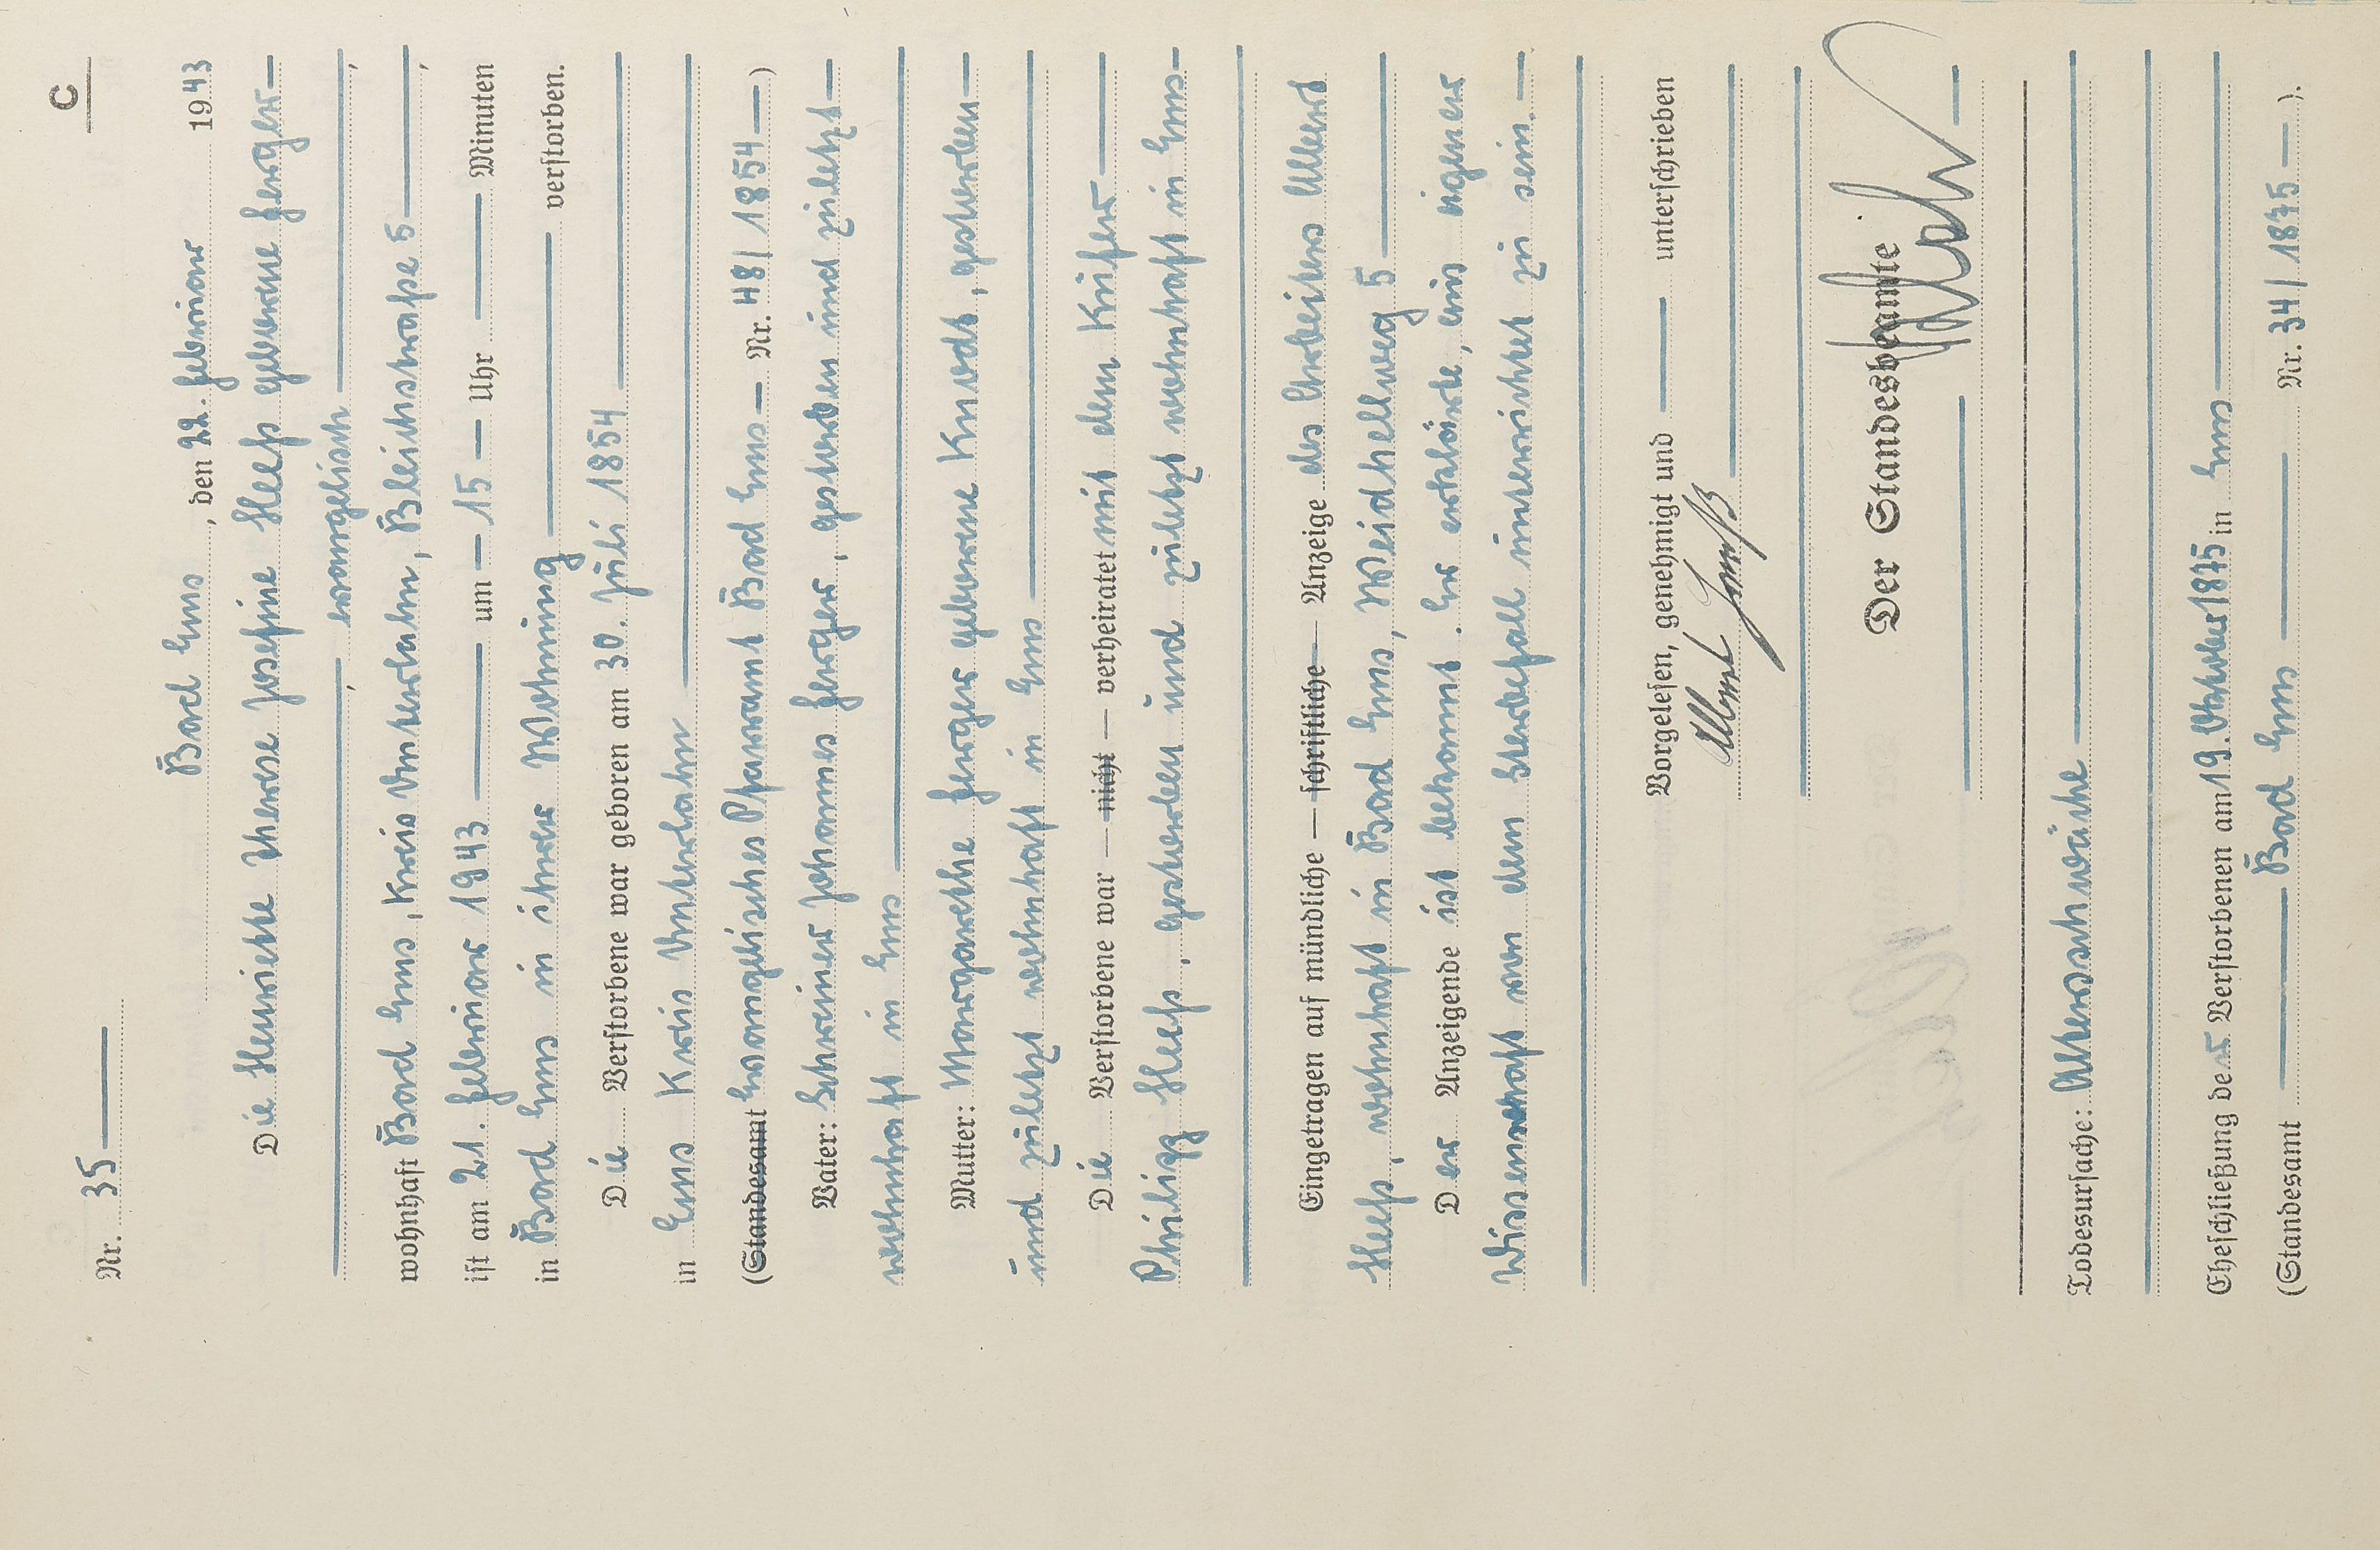 C
Nr. 35
Bad Ems, den 22. Februar 1943
Die Henriette Therese Josefine Heeß geborene Ferger
evangelisch,
wohnhaft Bad Ems, Kreis Unterlahn, Bleichstraße 5,
ist am 21. Februar 1943 um 15 Uhr Minuten
in Bad Ems in ihrer Wohnung verstorben.
Die Verstorbene war geboren am 30. Juli 1854
in Ems Kreis Unterlahn
(Standesamt Evangelisches Pfarramt Bad Ems Nr. 48/1854)
Vater: Schreiner Johannes Ferger, gestorben und zuletzt
wohnhaft in Ems
Mutter: Margarethe Ferger geborene Knodt, gestorben
und zuletzt wohnhaft in Ems
Die Verstorbene war — nicht — verheiratet mit dem Küfer
Philipp Heeß, gestorben und zuletzt wohnhaft in Ems
Eingetragen auf mündliche — schriftliche — Anzeige des Arbeiters Albert
Heeß, wohnhaft in Bad Ems, Weidhellweg 5
Der Anzeigende ist bekannt. Er erklärte, aus eigener
Wissenschaft von dem Sterbefall unterrichtet zu sein.
Vorgelesen, genehmigt und unterschrieben
Albert Heeß
Der Standesbeamte
Todesursache: Altersschwäche
Eheschließung der Verstorbenen am 19. Oktober 1875 in Ems
(Standesamt Bad Ems Nr. 34/1875).